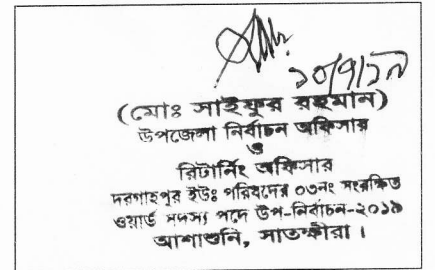 ১০/৭/১৯
(মোঃ সাইফুর রহমান)
উপজেলা নির্বাচন অফিসার
ও
রিটার্নিং অফিসার
দরগাহপুর ইউঃ পরিষদের ০৩নং সংরক্ষিত
ওয়ার্ড সদস্য পদে উপ-নির্বাচন-২০১৯
আশাশুনি, সাতক্ষীরা।